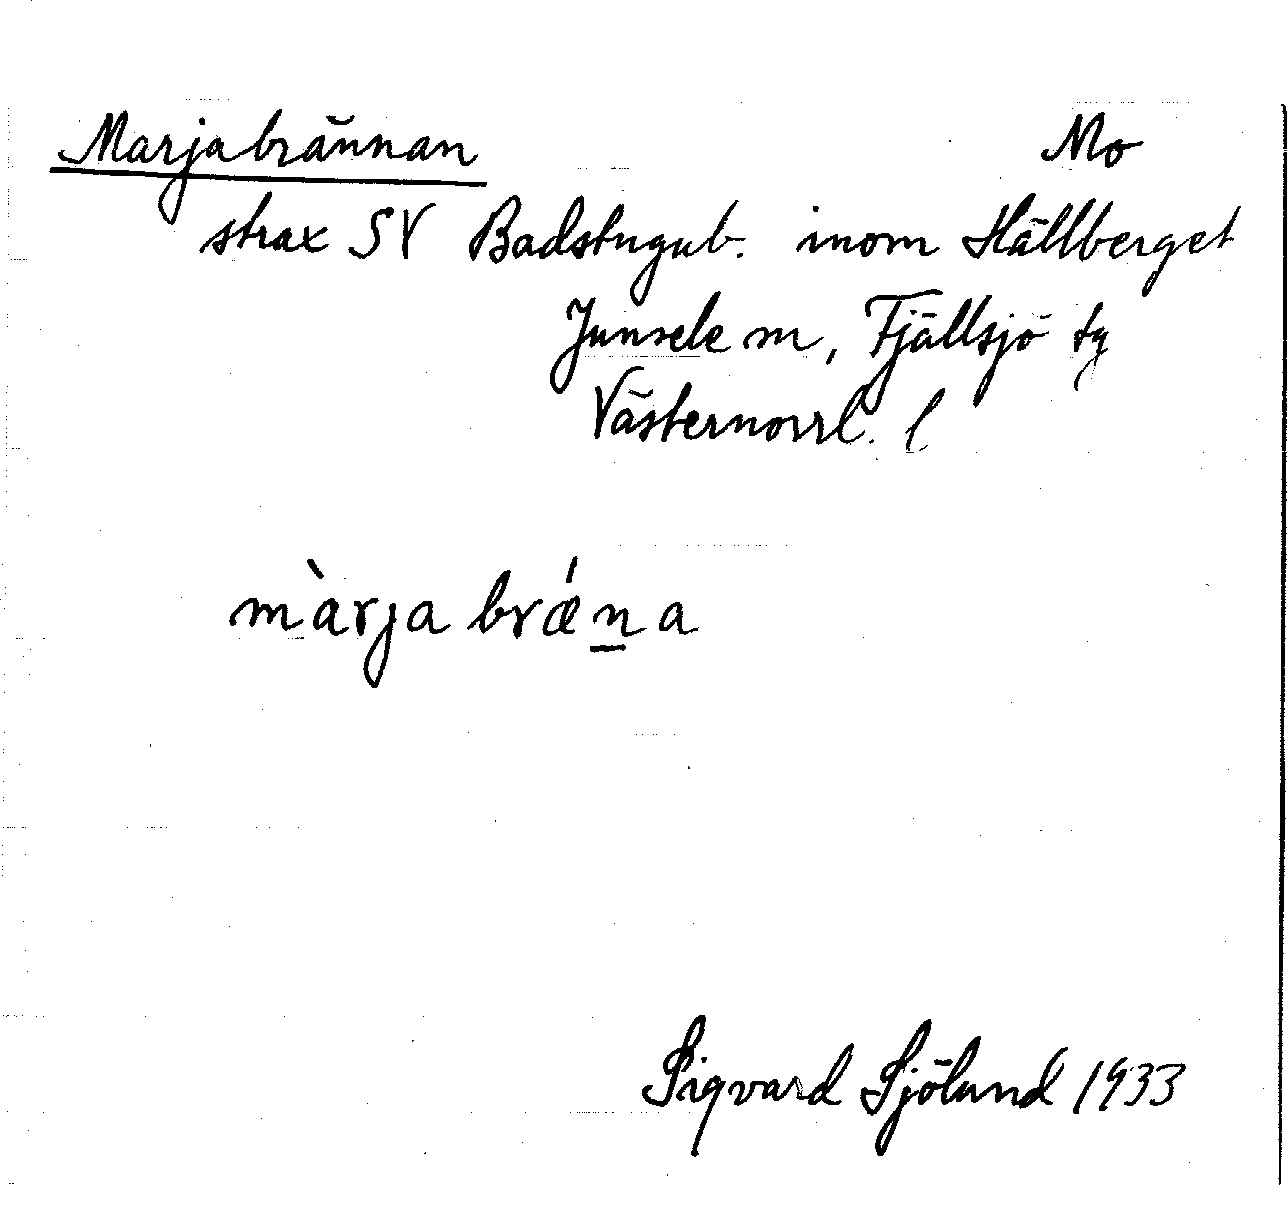 Marjabrännan Mo
strax SV Badstugub. inom Hällberget
Junsele sn, Fjällsjö tg
Västernorrl. l
màrja brǽn̲a
Sigvard Sjölund 1933